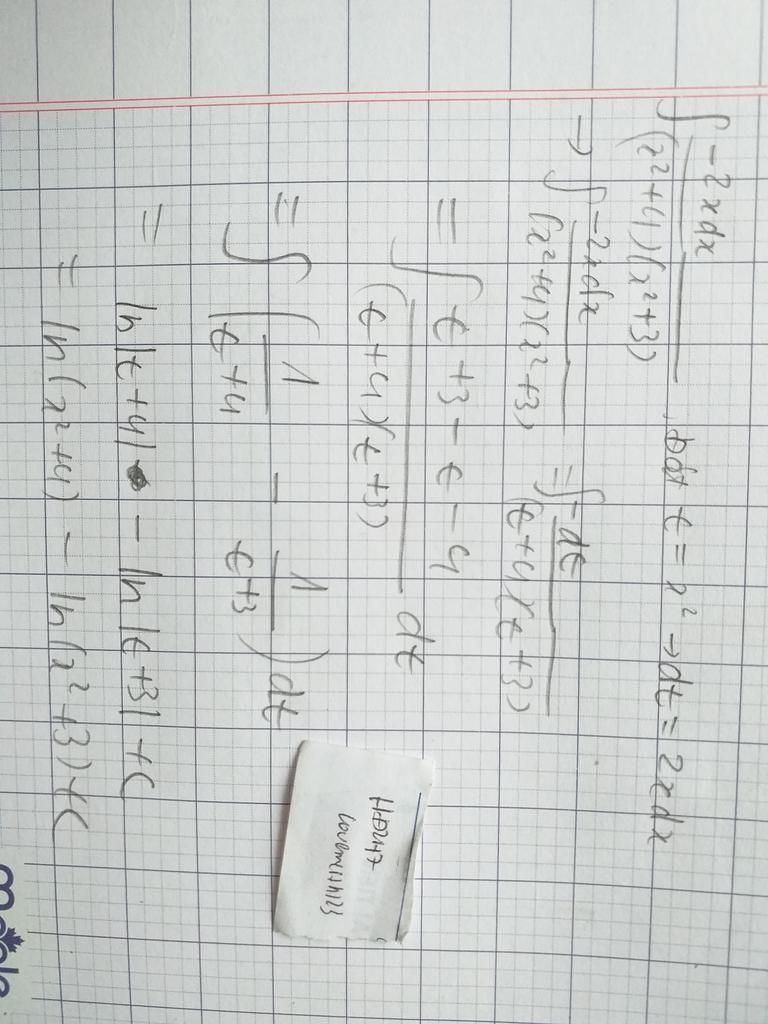 ∫ -2xdx / (x²+4)(x²+3) , Đặt t = x² → dt = 2xdx
→ ∫ -2xdx / (x²+4)(x²+3) = ∫ -dt / (t+4)(t+3)
= ∫ t+3-t-4 / (t+4)(t+3) dt
= ∫ (1 / t+4 - 1 / t+3) dt
= ln|t+4| - ln|t+3| + C
= ln(x²+4) - ln(x²+3) + C